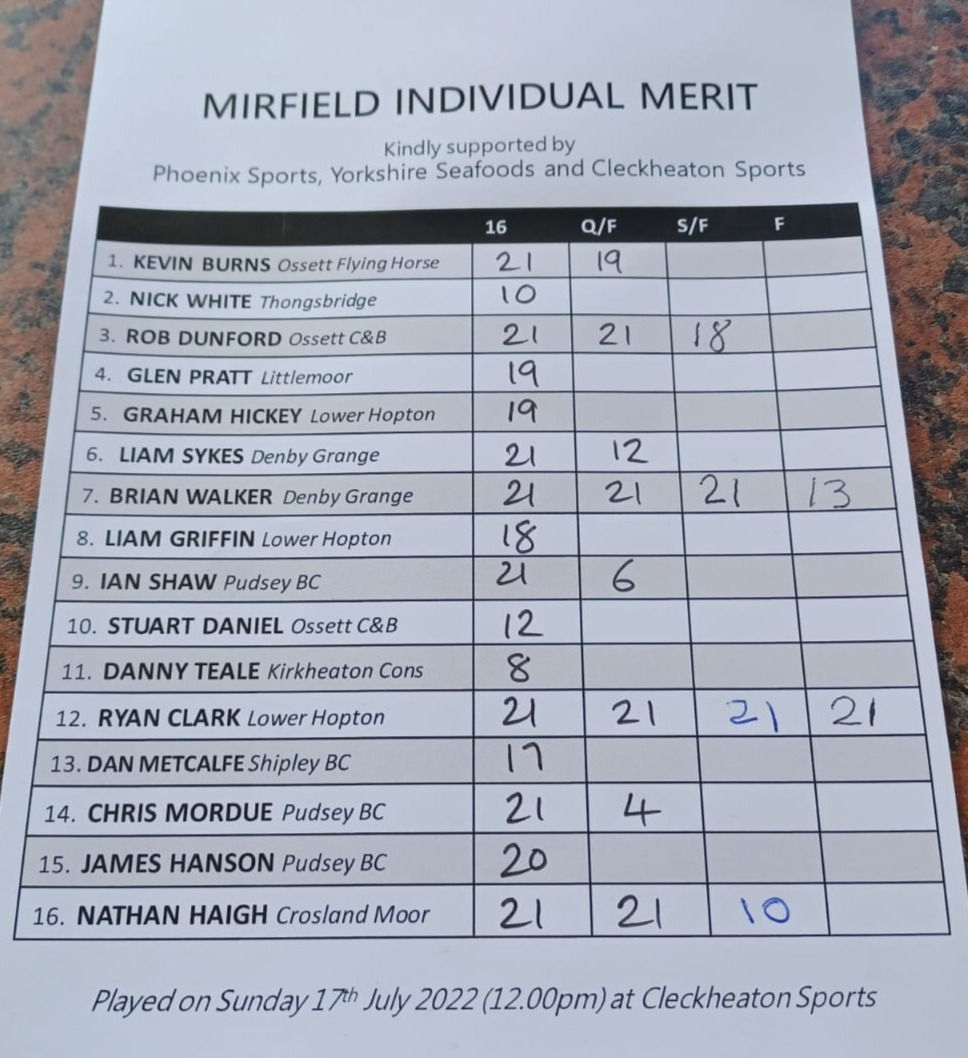 MIRFIELD INDIVIDUAL MERIT
Kindly supported by
Phoenix Sports, Yorkshire Seafoods and Cleckheaton Sports
16 Q/F S/F F
1. KEVIN BURNS Ossett Flying Horse 21 19
2. NICK WHITE Thongsbridge 10
3. ROB DUNFORD Ossett C&B 21 21 18
4. GLEN PRATT Littlemoor 19
5. GRAHAM HICKEY Lower Hopton 19
6. LIAM SYKES Denby Grange 21 12
7. BRIAN WALKER Denby Grange 21 21 21 13
8. LIAM GRIFFIN Lower Hopton 18
9. IAN SHAW Pudsey BC 21 6
10. STUART DANIEL Ossett C&B 12
11. DANNY TEALE Kirkheaton Cons 8
12. RYAN CLARK Lower Hopton 21 21 21 21
13. DAN METCALFE Shipley BC 17
14. CHRIS MORDUE Pudsey BC 21 4
15. JAMES HANSON Pudsey BC 20
16. NATHAN HAIGH Crosland Moor 21 21 10
Played on Sunday 17th July 2022 (12.00pm) at Cleckheaton Sports